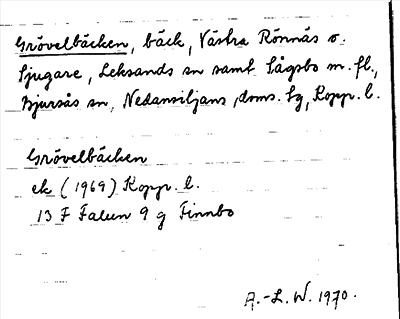 Grövelbäcken, bäck, Västra Rönnäs o.
Sjugare, Leksands sn samt Sågsbo m. fl.,
Bjursås sn, Nedansiljans doms. tg, Kopp. l.
Grövelbäcken
ek (1969) Kopp. l.
13 F Falun 9 g Finnbo
A.-L. W. 1970.